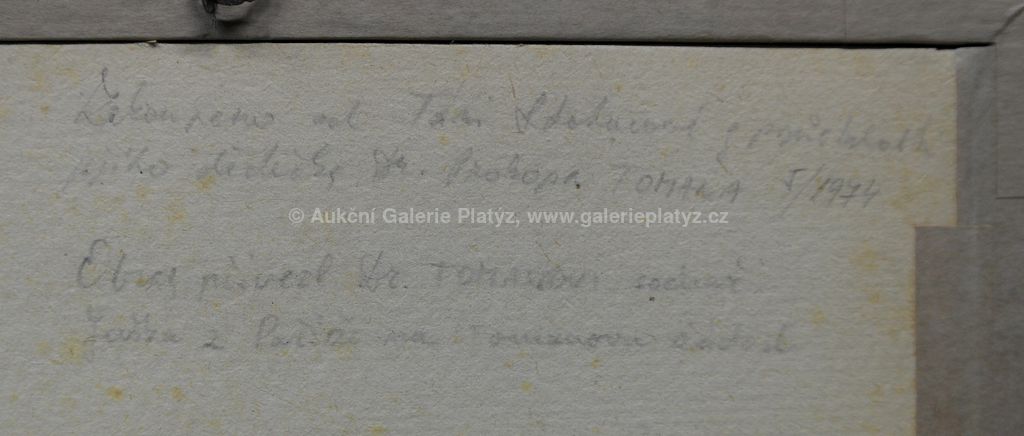 Zakoupeno od Táni
jejího dědečka Dr. Prokopa TOMANA I/1974
© Aukční Galerie Platýz, www.galerieplatyz.cz
Obraz přivezl Dr. TOMANOVI sochař
z Paříže na Tomanovu žádost